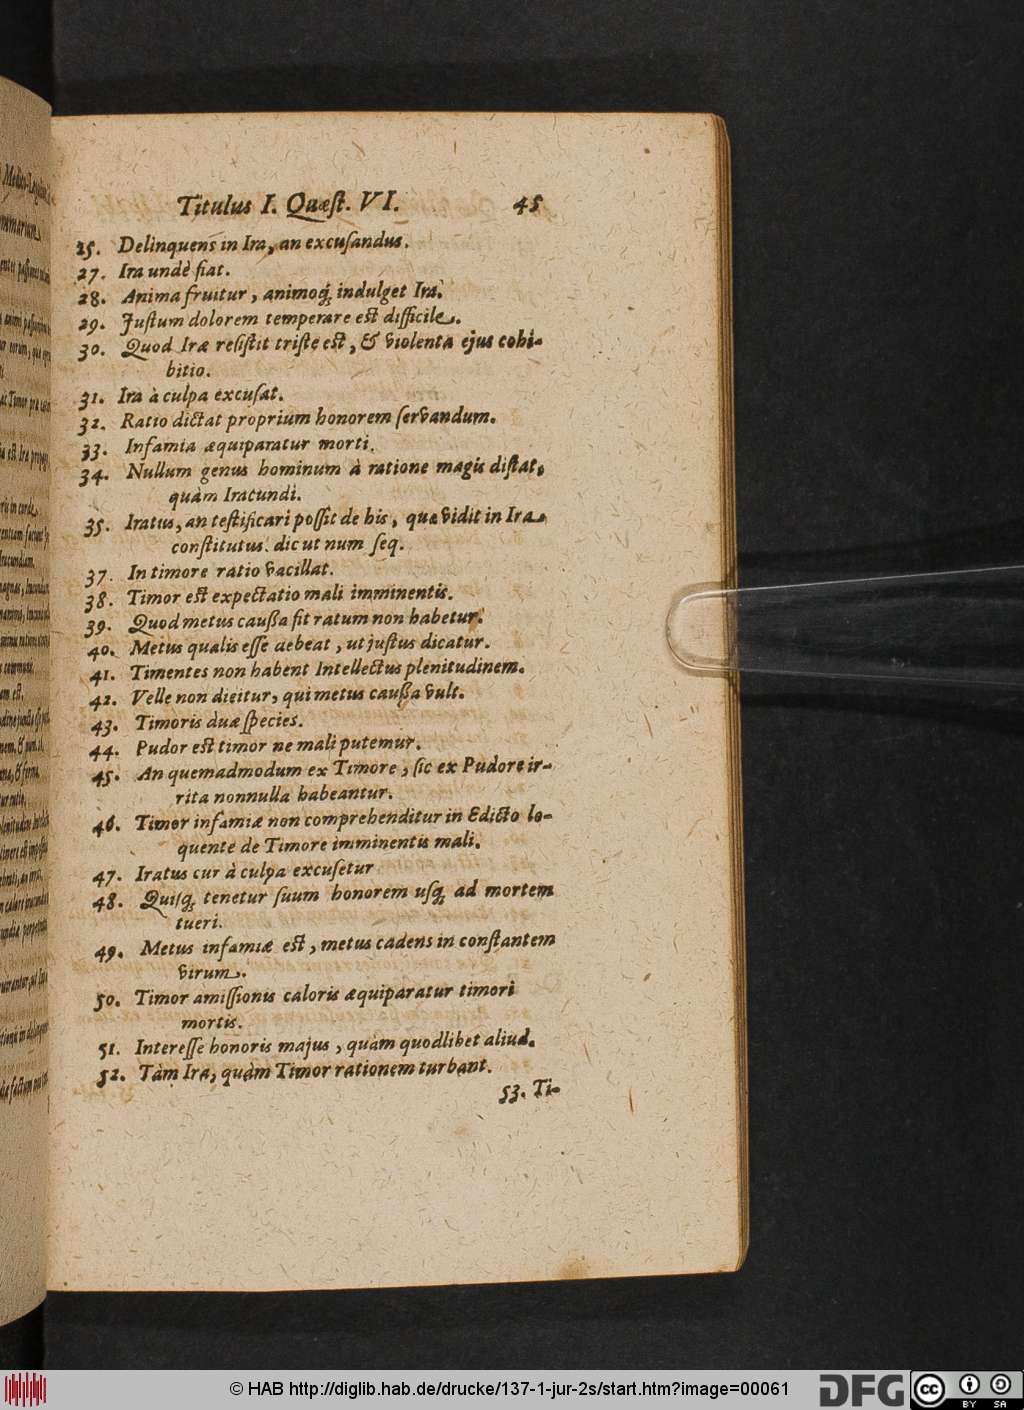 Titulus I. Quæſt. VI. 45
25. Delinquens in Ira, an excuſandus.
27. Ira undè fiat.
28. Anima fruitur, animoq; indulget Ira.
29. Juſtum dolorem temperare eſt difficile.
30. Quod Iræ reſiſtit triſte eſt, & violenta ejus cohi-
bitio.
31. Ira à culpa excuſat.
32. Ratio dictat proprium honorem ſervandum.
33. Infamia æquiparatur morti.
34. Nullum genus hominum à ratione magis diſtat,
quàm Iracundi.
35. Iratus, an teſtificari poſſit de his, quæ vidit in Ira
conſtitutus. dic ut num ſeq.
37. In timore ratio vacillat.
38. Timor eſt expectatio mali imminentis.
39. Quod metus cauſſa fit ratum non habetur.
40. Metus qualis eſſe debeat, ut juſtus dicatur.
41. Timentes non habent Intellectus plenitudinem.
42. Velle non dicitur, qui metus cauſſa vult.
43. Timoris duæ ſpecies.
44. Pudor eſt timor ne mali putemur.
45. An quemadmodum ex Timore, ſic ex Pudore ir-
rita nonnulla habeantur.
46. Timor infamiæ non comprehenditur in Edicto lo-
quente de Timore imminentis mali.
47. Iratus cur à culpa excuſetur
48. Quiſq; tenetur ſuum honorem uſq; ad mortem
tueri.
49. Metus infamiæ eſt, metus cadens in conſtantem
virum.
50. Timor amiſſionis caloris æquiparatur timori
mortis.
51. Intereſſe honoris majus, quàm quodlibet aliud.
52. Tàm Ira, quàm Timor rationem turbant.
53. Ti-
© HAB http://diglib.hab.de/drucke/137-1-jur-2s/start.htm?image=00061
DFG
cc BY SA